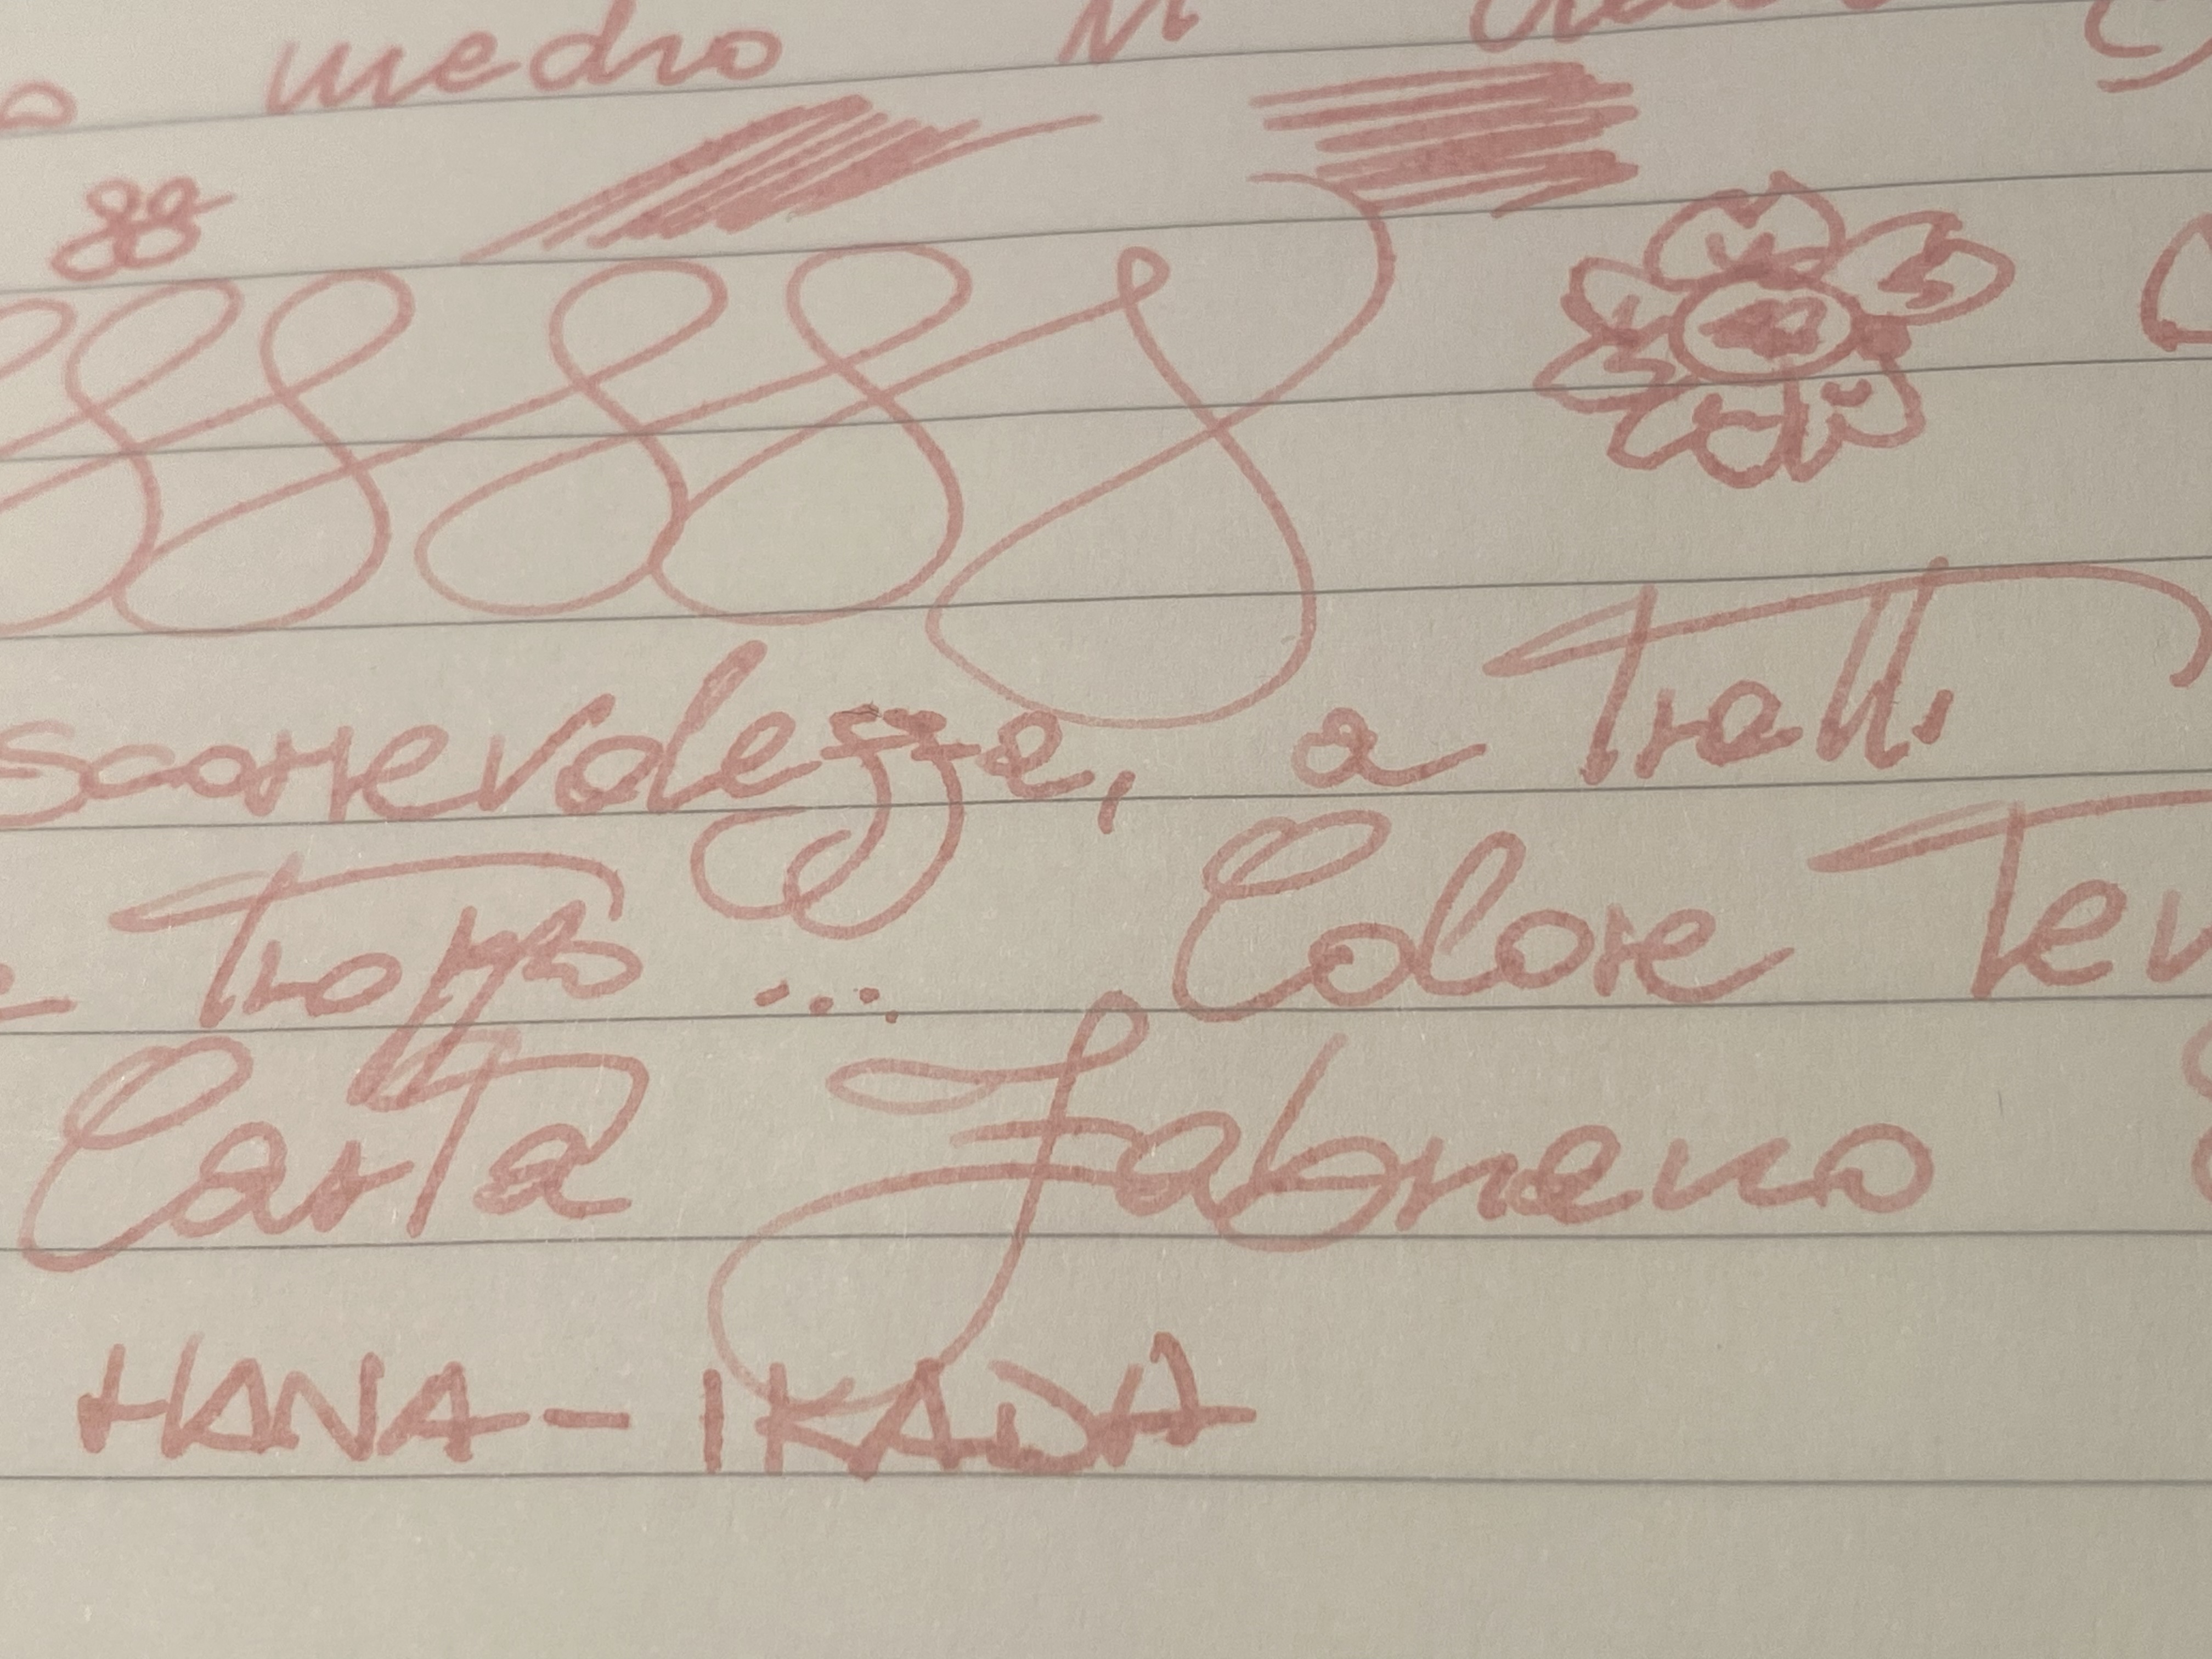 medio M
scorrevolezza, a Tratti
Troppo ... Colore
Carta Fabriano
HANA-IKADA